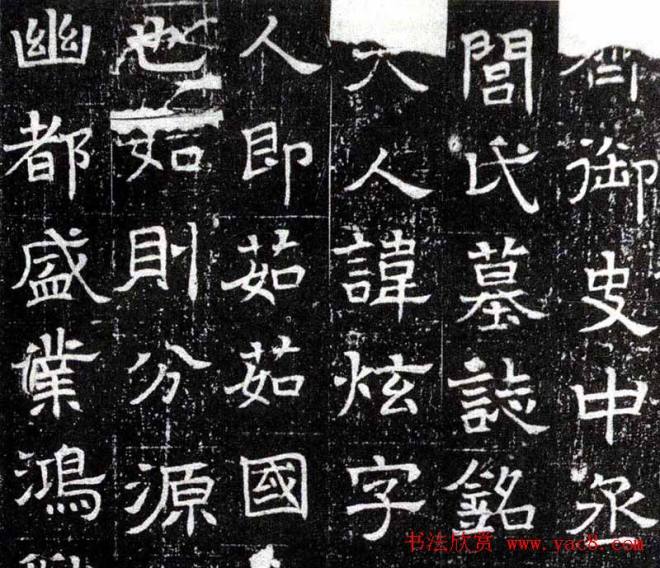 齊御史中丞
閭氏墓誌銘
夫人諱炫字
人即茹茹國
也如則分源
幽都盛業鴻
书法欣赏 www.yac8.com